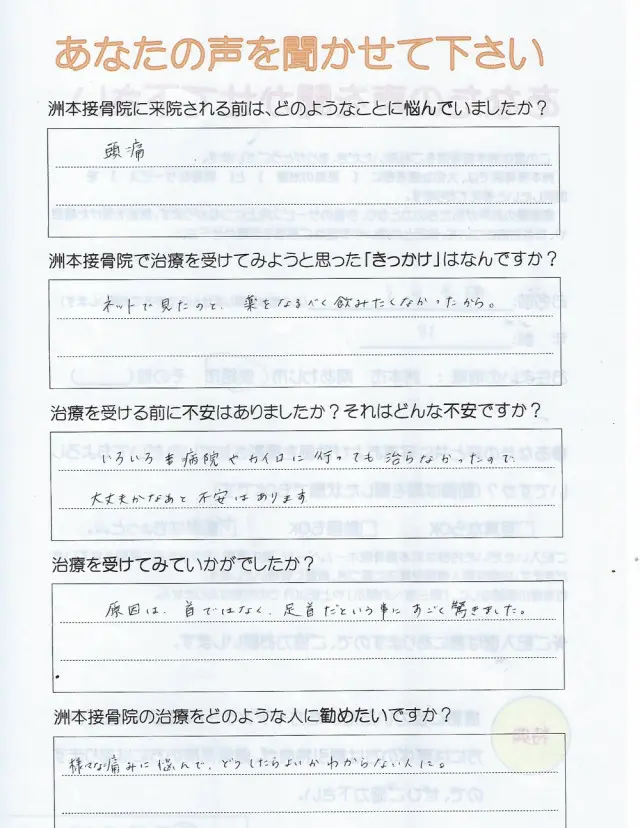 あなたの声を聞かせて下さい
洲本接骨院に来院される前は、どのようなことに悩んでいましたか？
頭痛
洲本接骨院で治療を受けてみようと思った「きっかけ」はなんですか？
ネットで見たのと、薬をなるべく飲みたくなかったから。
治療を受ける前に不安はありましたか？それはどんな不安ですか？
いろいろ病院やカイロに行っても治らなかったので
大丈夫かなあと不安はあります
治療を受けてみていかがでしたか？
原因は、首ではなく、足首だという事にすごく驚きました。
洲本接骨院の治療をどのような人に勧めたいですか？
様々な痛みに悩んで、どうしたらよいかわからない人に。